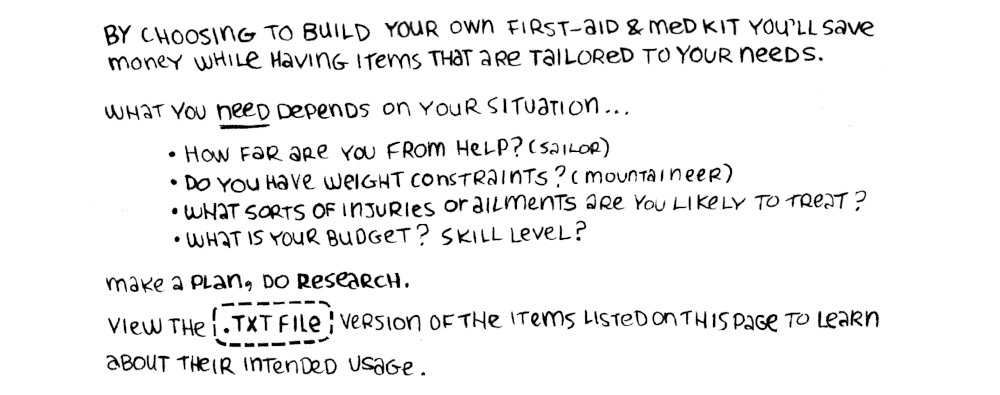 BY CHOOSING TO BUILD YOUR OWN FIRST-AID & MED KIT YOU'LL SAVE
MONEY WHILE HAVING ITEMS THAT ARE TAILORED TO YOUR NEEDS.
WHAT YOU NEED DEPENDS ON YOUR SITUATION...
• HOW FAR ARE YOU FROM HELP? (SAILOR)
• DO YOU HAVE WEIGHT CONSTRAINTS? (MOUNTAINEER)
• WHAT SORTS OF INJURIES OR AILMENTS ARE YOU LIKELY TO TREAT?
• WHAT IS YOUR BUDGET? SKILL LEVEL?
MAKE A PLAN, DO RESEARCH.
VIEW THE .TXT FILE VERSION OF THE ITEMS LISTED ON THIS PAGE TO LEARN
ABOUT THEIR INTENDED USAGE.